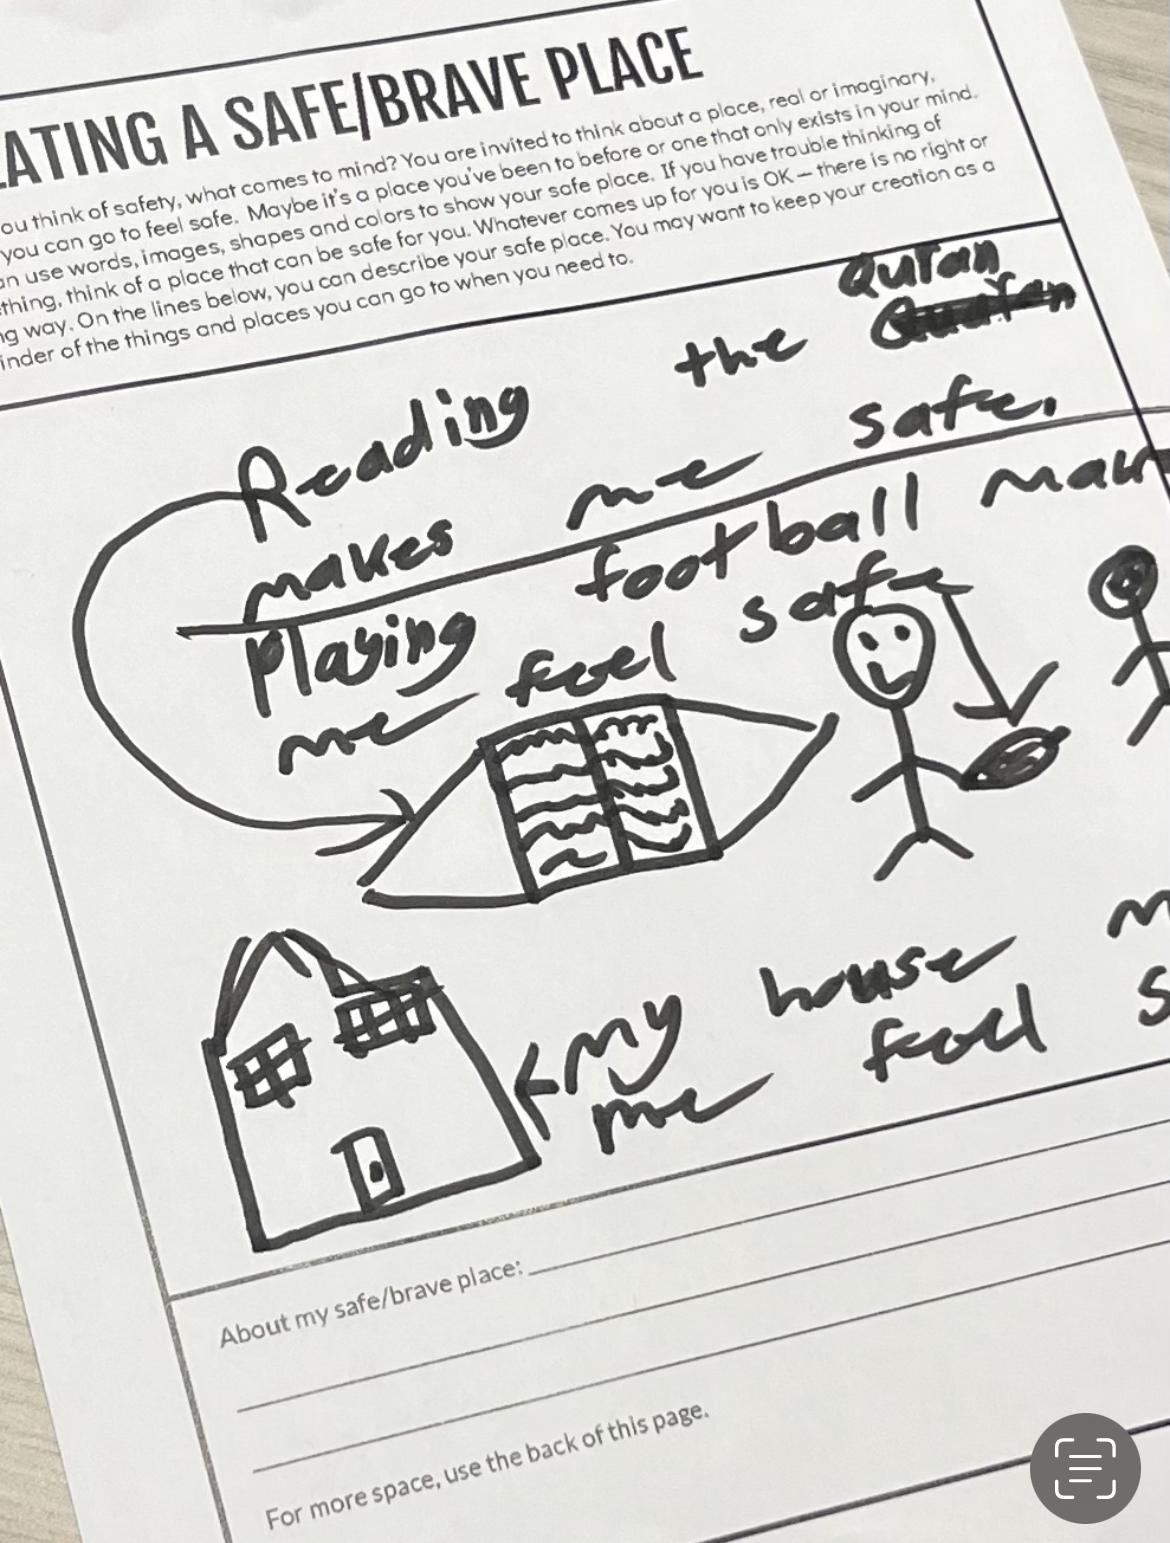 ATING A SAFE/BRAVE PLACE
ou think of safety, what comes to mind? You are invited to think about a place, real or imaginary,
you can go to feel safe. Maybe it's a place you've been to before or one that only exists in your mind.
an use words, images, shapes and colors to show your safe place. If you have trouble thinking of
thing, think of a place that can be safe for you. Whatever comes up for you is OK — there is no right or
ng way. On the lines below, you can describe your safe place. You may want to keep your creation as a
inder of the things and places you can go to when you need to.
Reading the Quran
makes me safe.
Playing football mak
me feel safe
my house m
me feel s
About my safe/brave place:
For more space, use the back of this page.